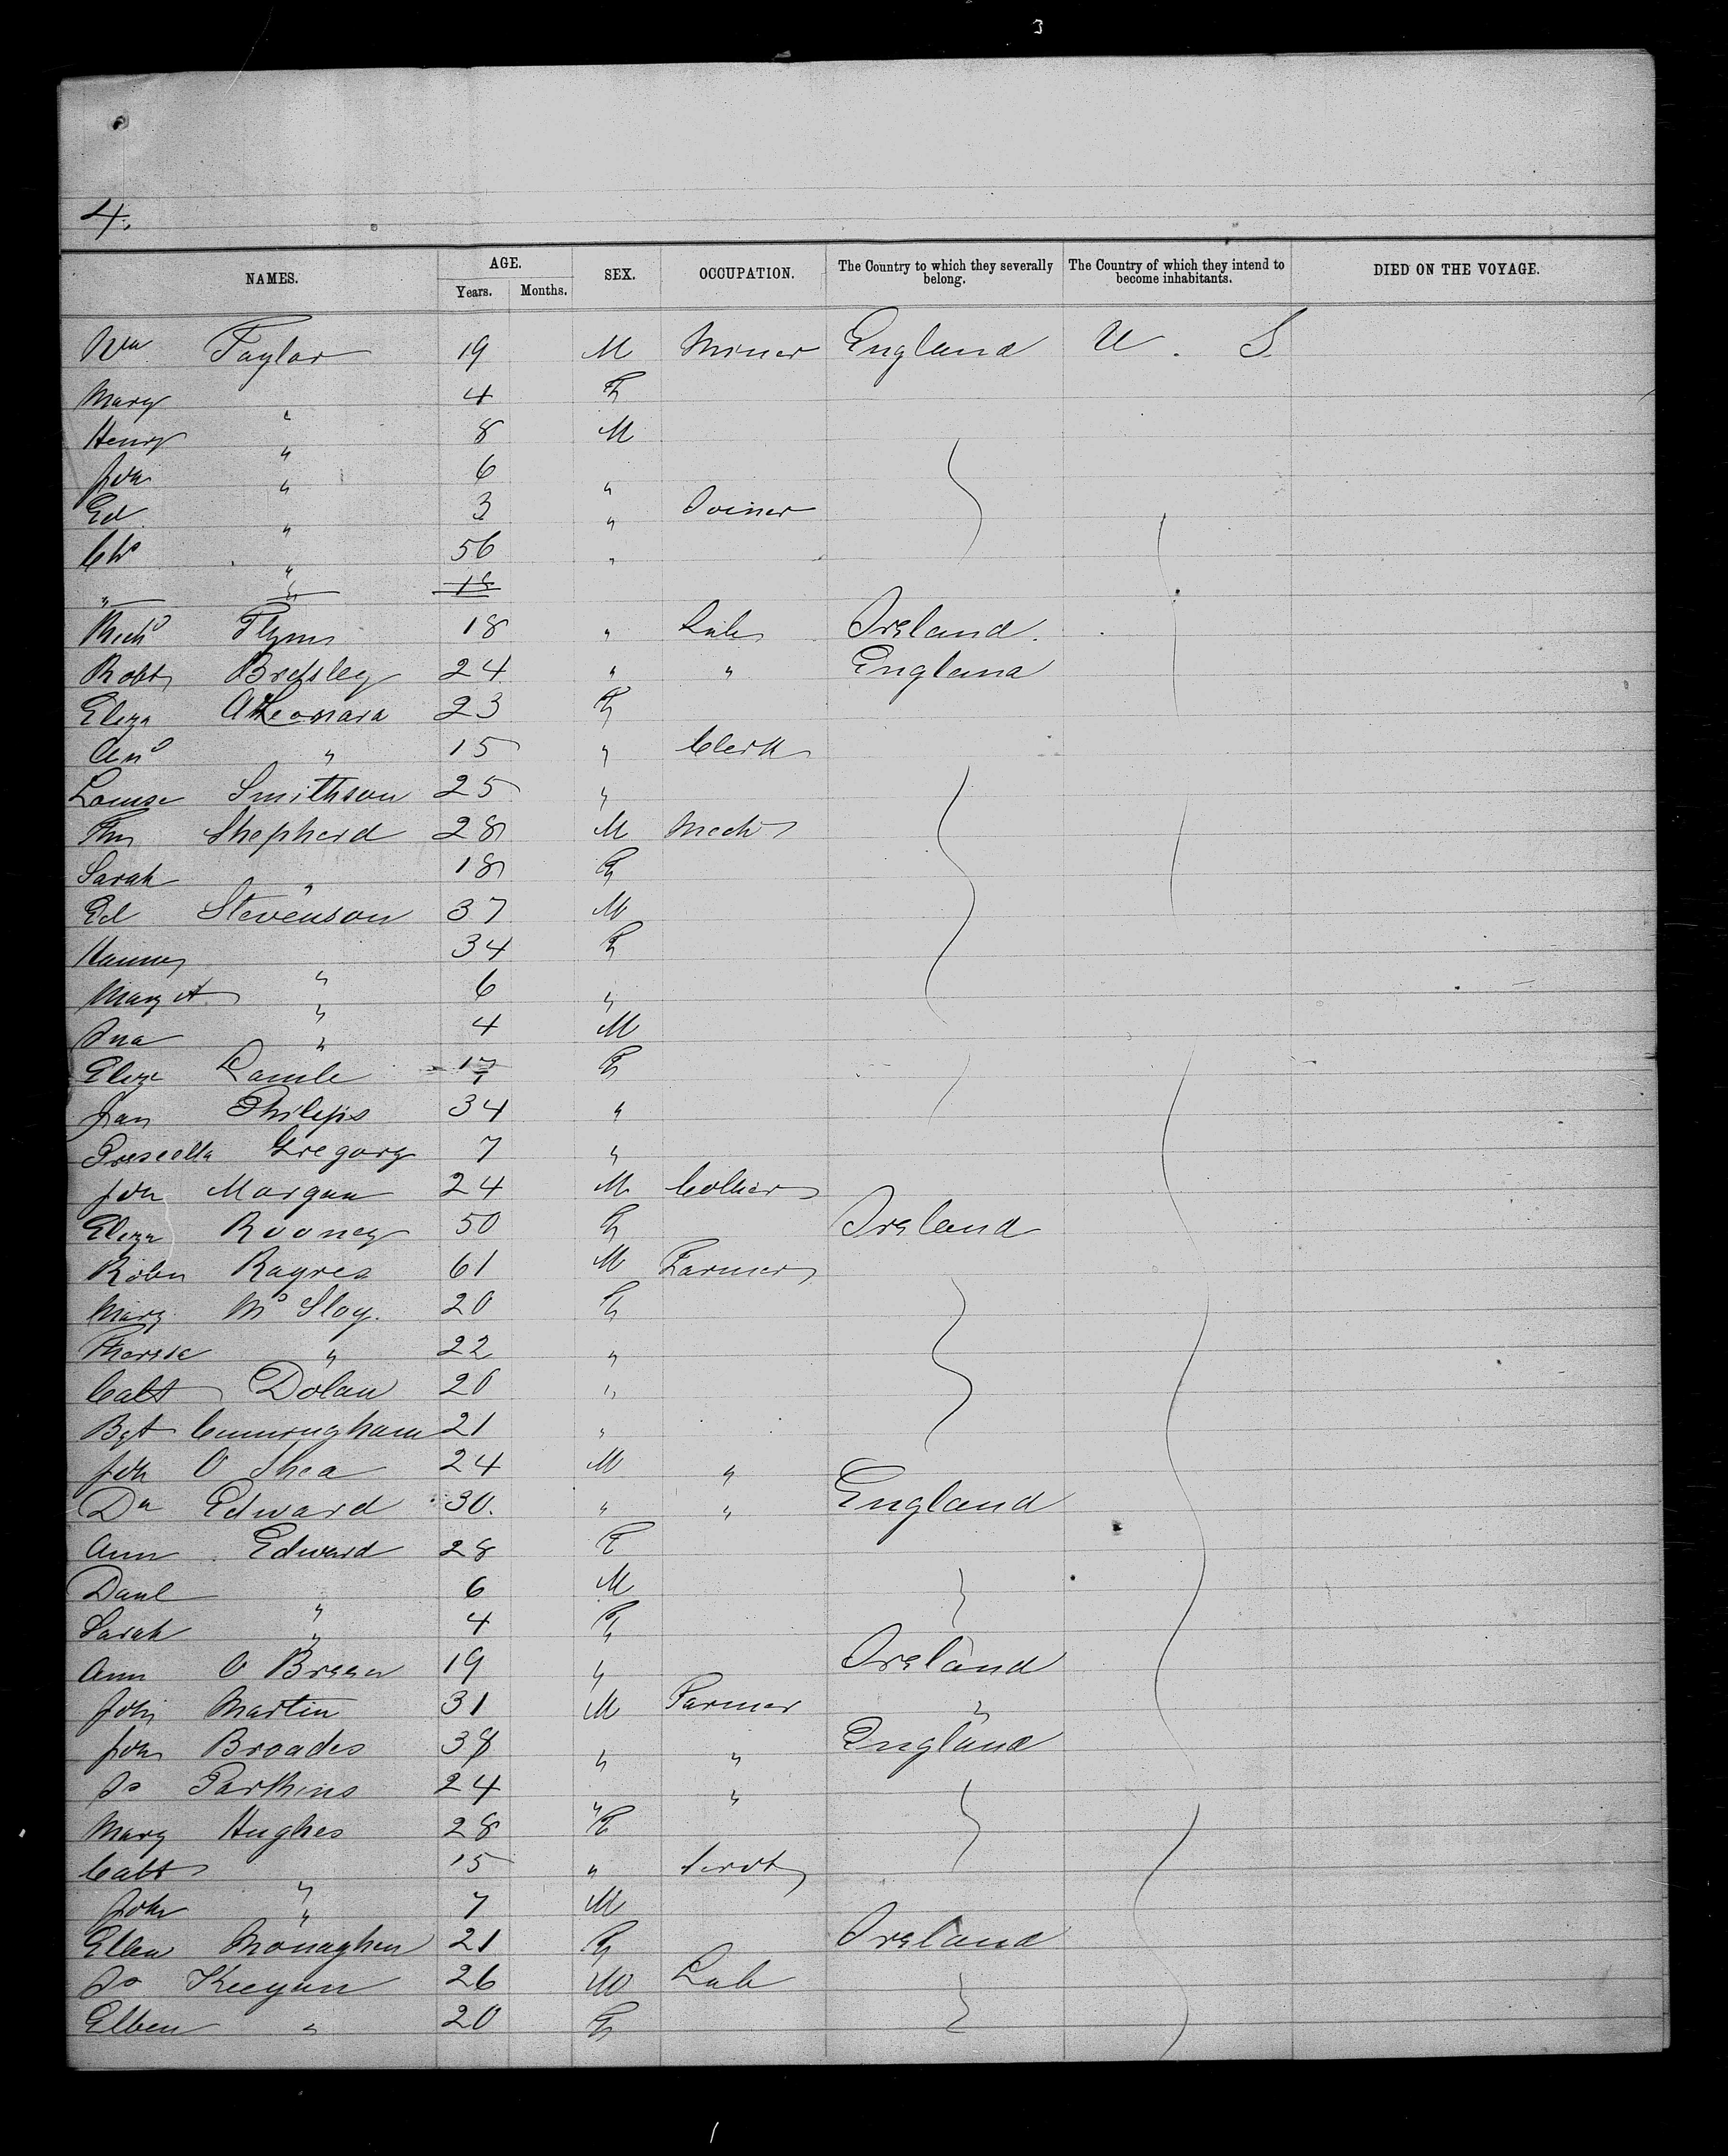 3
4.
NAMES. AGE. Years. Months. SEX. OCCUPATION. The Country to which they severally belong. The Country of which they intend to become inhabitants. DIED ON THE VOYAGE.
Wm Taylor 19 M Miner England U. S
Mary " 4 F
Henry " 8 M
Jon " 6 "
Ed " 3 " Joiner
Chs " 56 "
" " 18
Michl Flynn 18 " Lab Ireland.
Robt 24 " " England
Eliza 23 F
" 15 " Clerk
Louise Smithson 25 "
Thos Shepherd 28 M Mech
Sarah " 18 F
Ed Stevenson 37 M
Hanna " 34 F
Mary A " 6 "
Ina " 4 M
Eliza 17 F
Jan Philips 34 "
Prescella Gregory 7 "
Jon Morgan 24 M Collier
Eliza Rooney 50 F Ireland
Robn 61 M Farmer
Marg Mc Sloy. 20 F
Theresa " 22 "
Cath Dolan 20 "
Bgt Cunningham 21 "
Joh O Shea 24 M "
Dn Edward 30. " " England
Ann Edward 28 F
Danl " 6 M
Sarah " 4 F
Ann O Breen 19 " Ireland
John Martin 31 M Farmer "
John Broades 38 " " England
Js Parkins 24 " "
Mary Hughes 28 F
Cath " 15 " Servt
John " 7 M
Ellen Monaghen 21 F Ireland
Js Keegan 26 M Lab
Ellen " 20 F